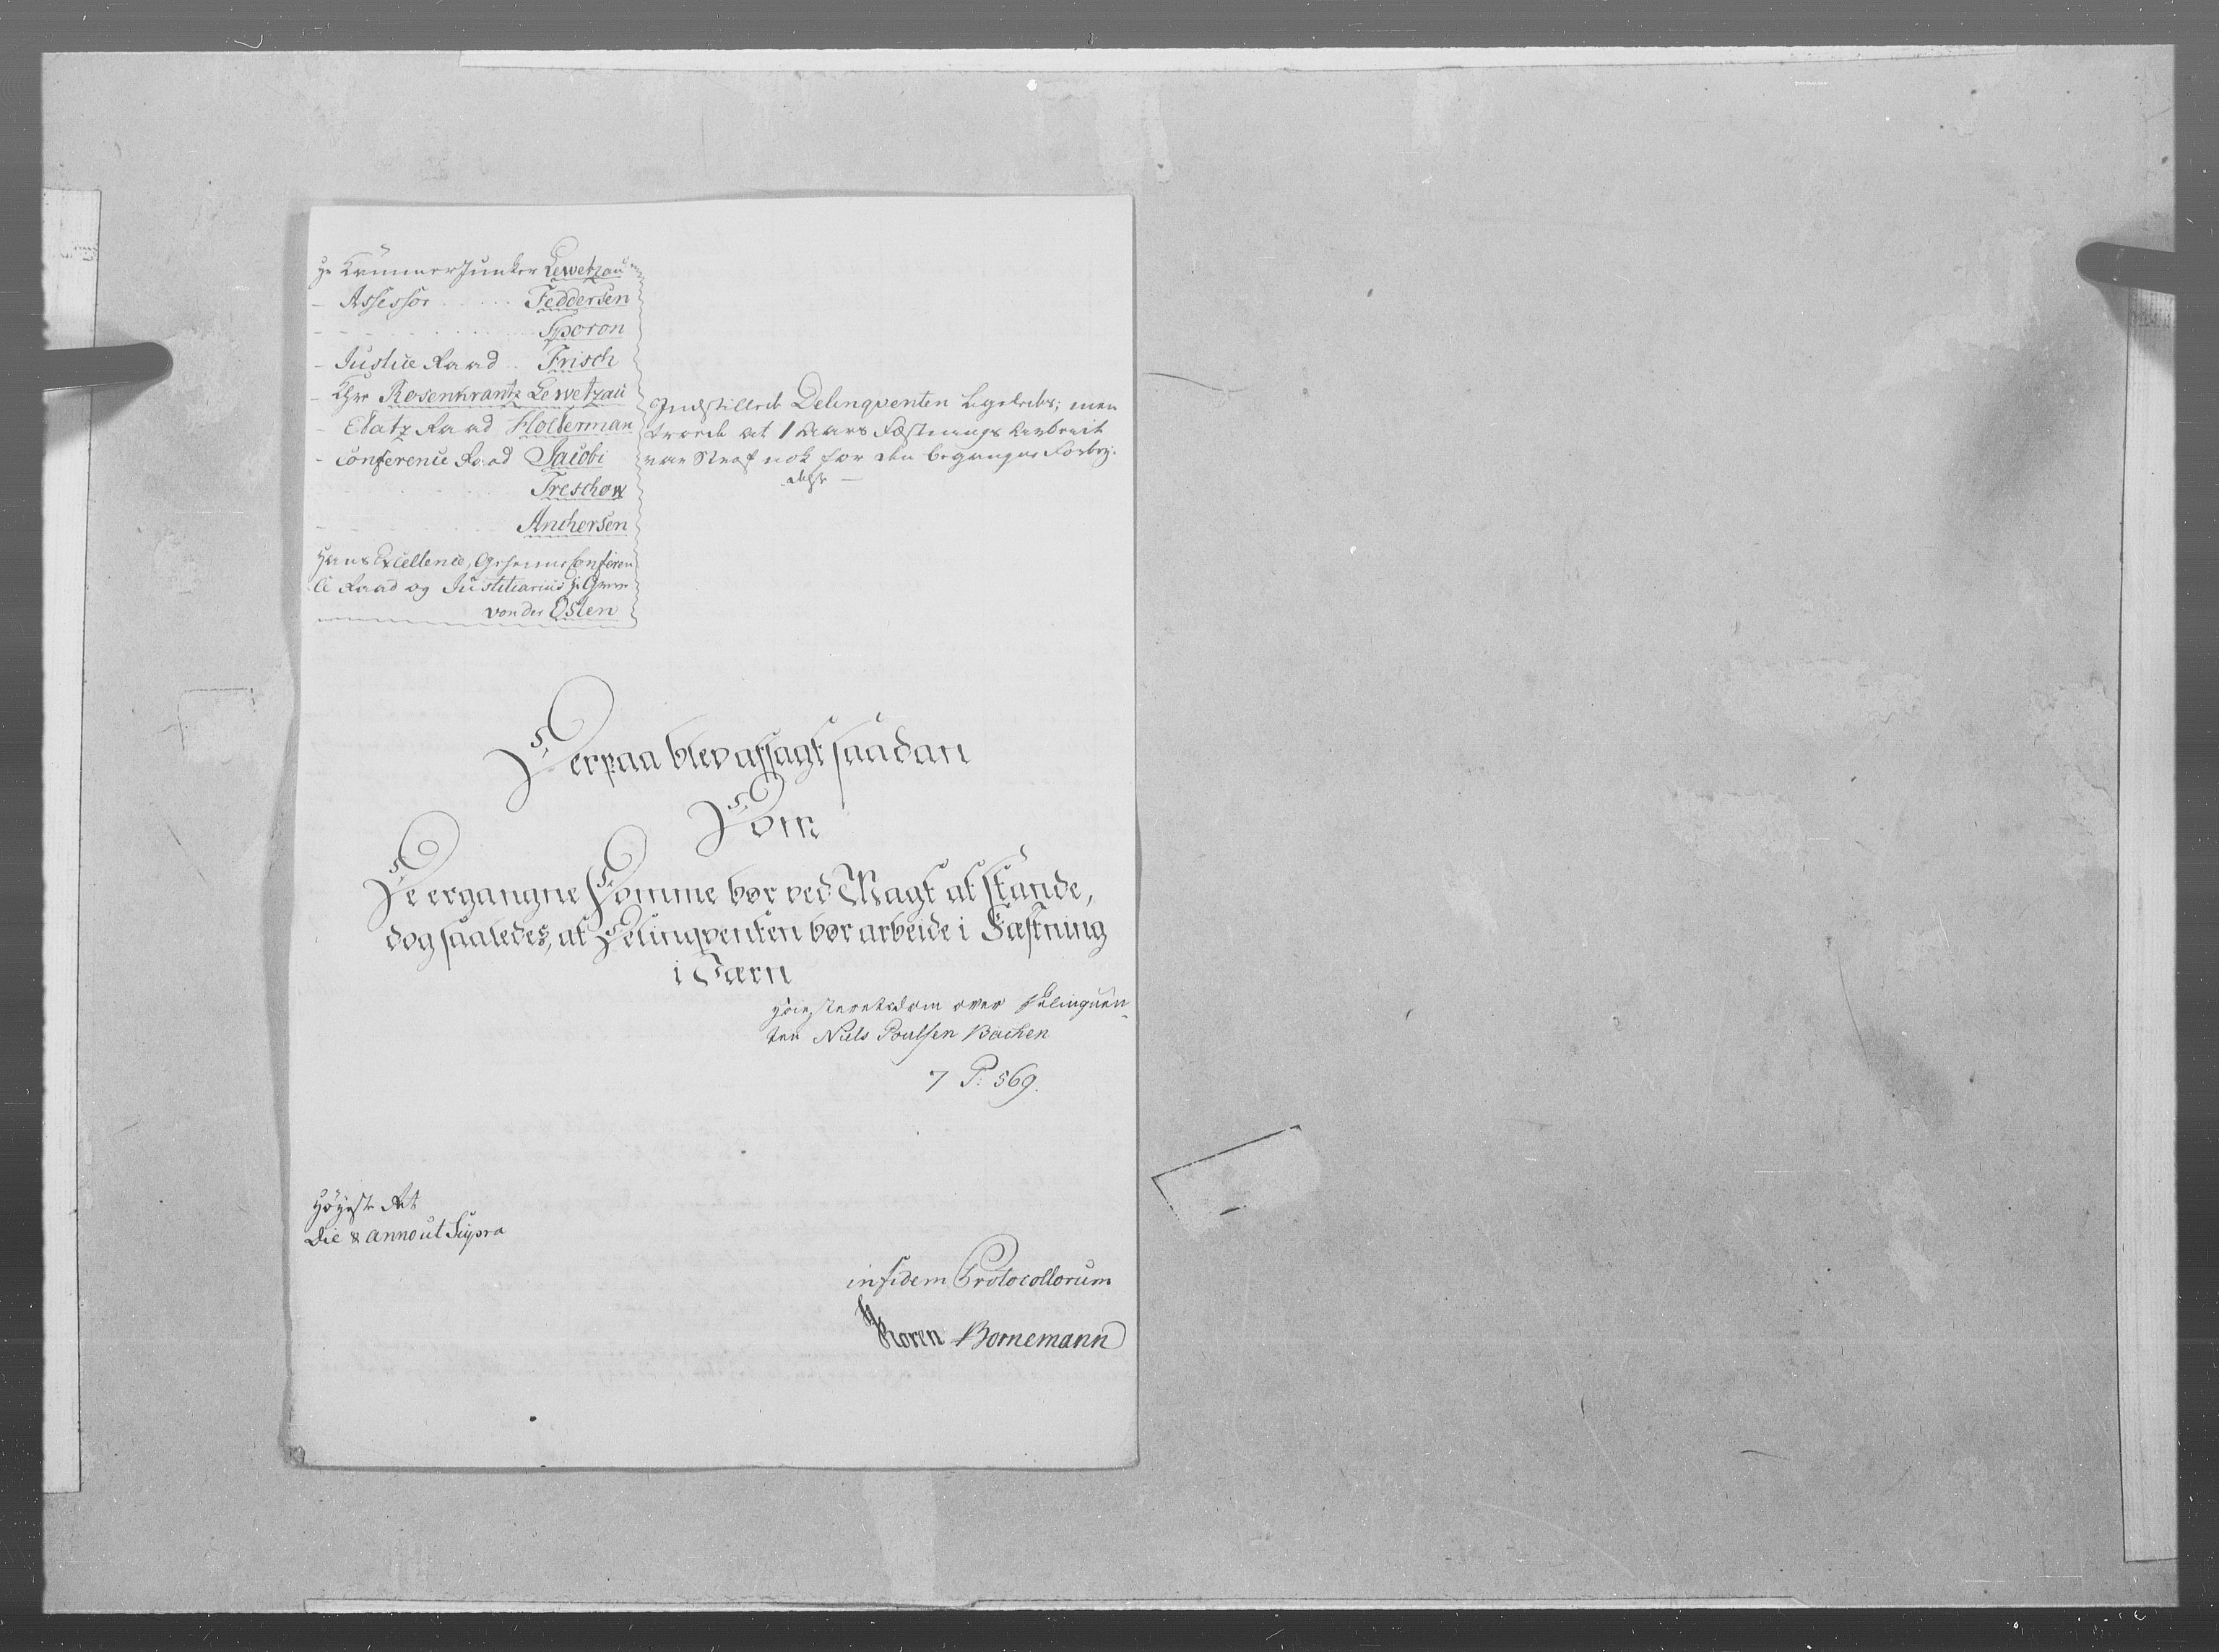 Hr Kammer Junker Lewetzau
- Assessor ...... Feddersen
- - - ......... Sporon
- Justice Raad .. Frisch
- Khr Rosenkrantz Lewetzau
- Etatz Raad Holterman
- Conference Raad Jacobi
Treschow
Anchersen
Hans Excellence, Geheime Conferen
ce Raad og Justitiarius Hr Greve
von der Osten
Indstillede Delinqventen ligeledes; men
troede at 1 Aars Fæstnings Arbeide
var Straf nok for den begangne Forbry-
delse —
Derpaa blev afsagt saadan
Dom
De ergangne Domme bør ved Magt at stande,
dog saaledes, at Delinqventen bør arbeide i Fæstning
i Jærn
Høiesteretsdom over Delinquen-
ten Niels Poulsen Bachen
7 P: 569.
Høyeste Ret
Die & anno ut Supra
in fidem Protocollorum
Koren Bornemann